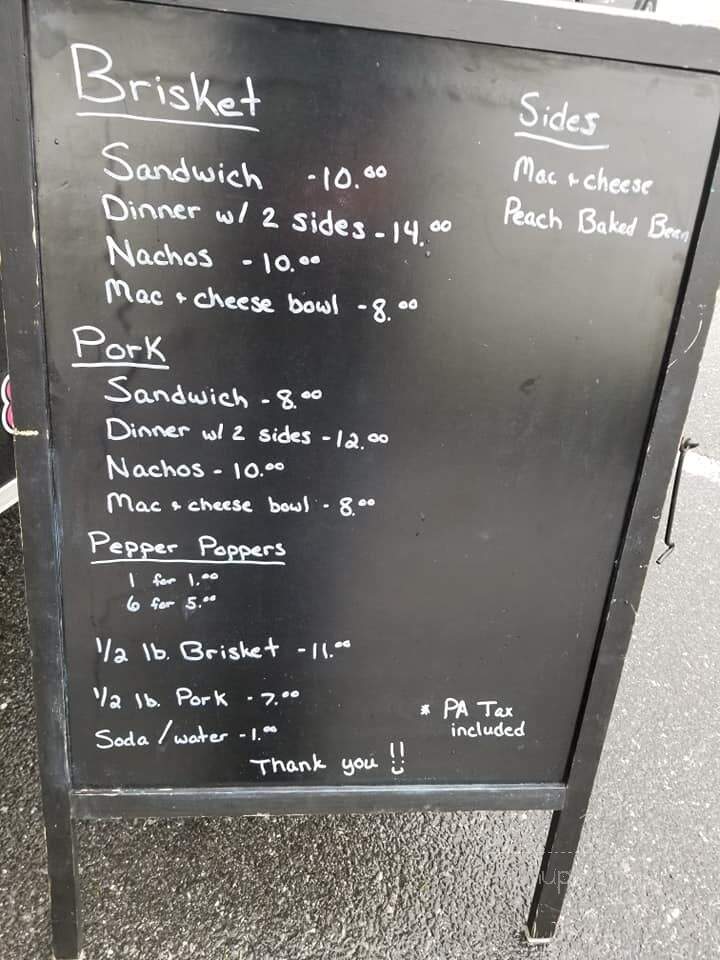 Brisket
Sandwich - 10.00
Dinner w/ 2 sides - 14.00
Nachos - 10.00
Mac + cheese bowl - 8.00
Pork
Sandwich - 8.00
Dinner w/ 2 sides - 12.00
Nachos - 10.00
Mac + cheese bowl - 8.00
Pepper Poppers
1 for 1.00
6 for 5.00
1/2 lb. Brisket - 11.00
1/2 lb. Pork - 7.00
Soda / water - 1.00
Sides
Mac + cheese
Peach Baked Bean
* PA Tax
included
Thank you !!